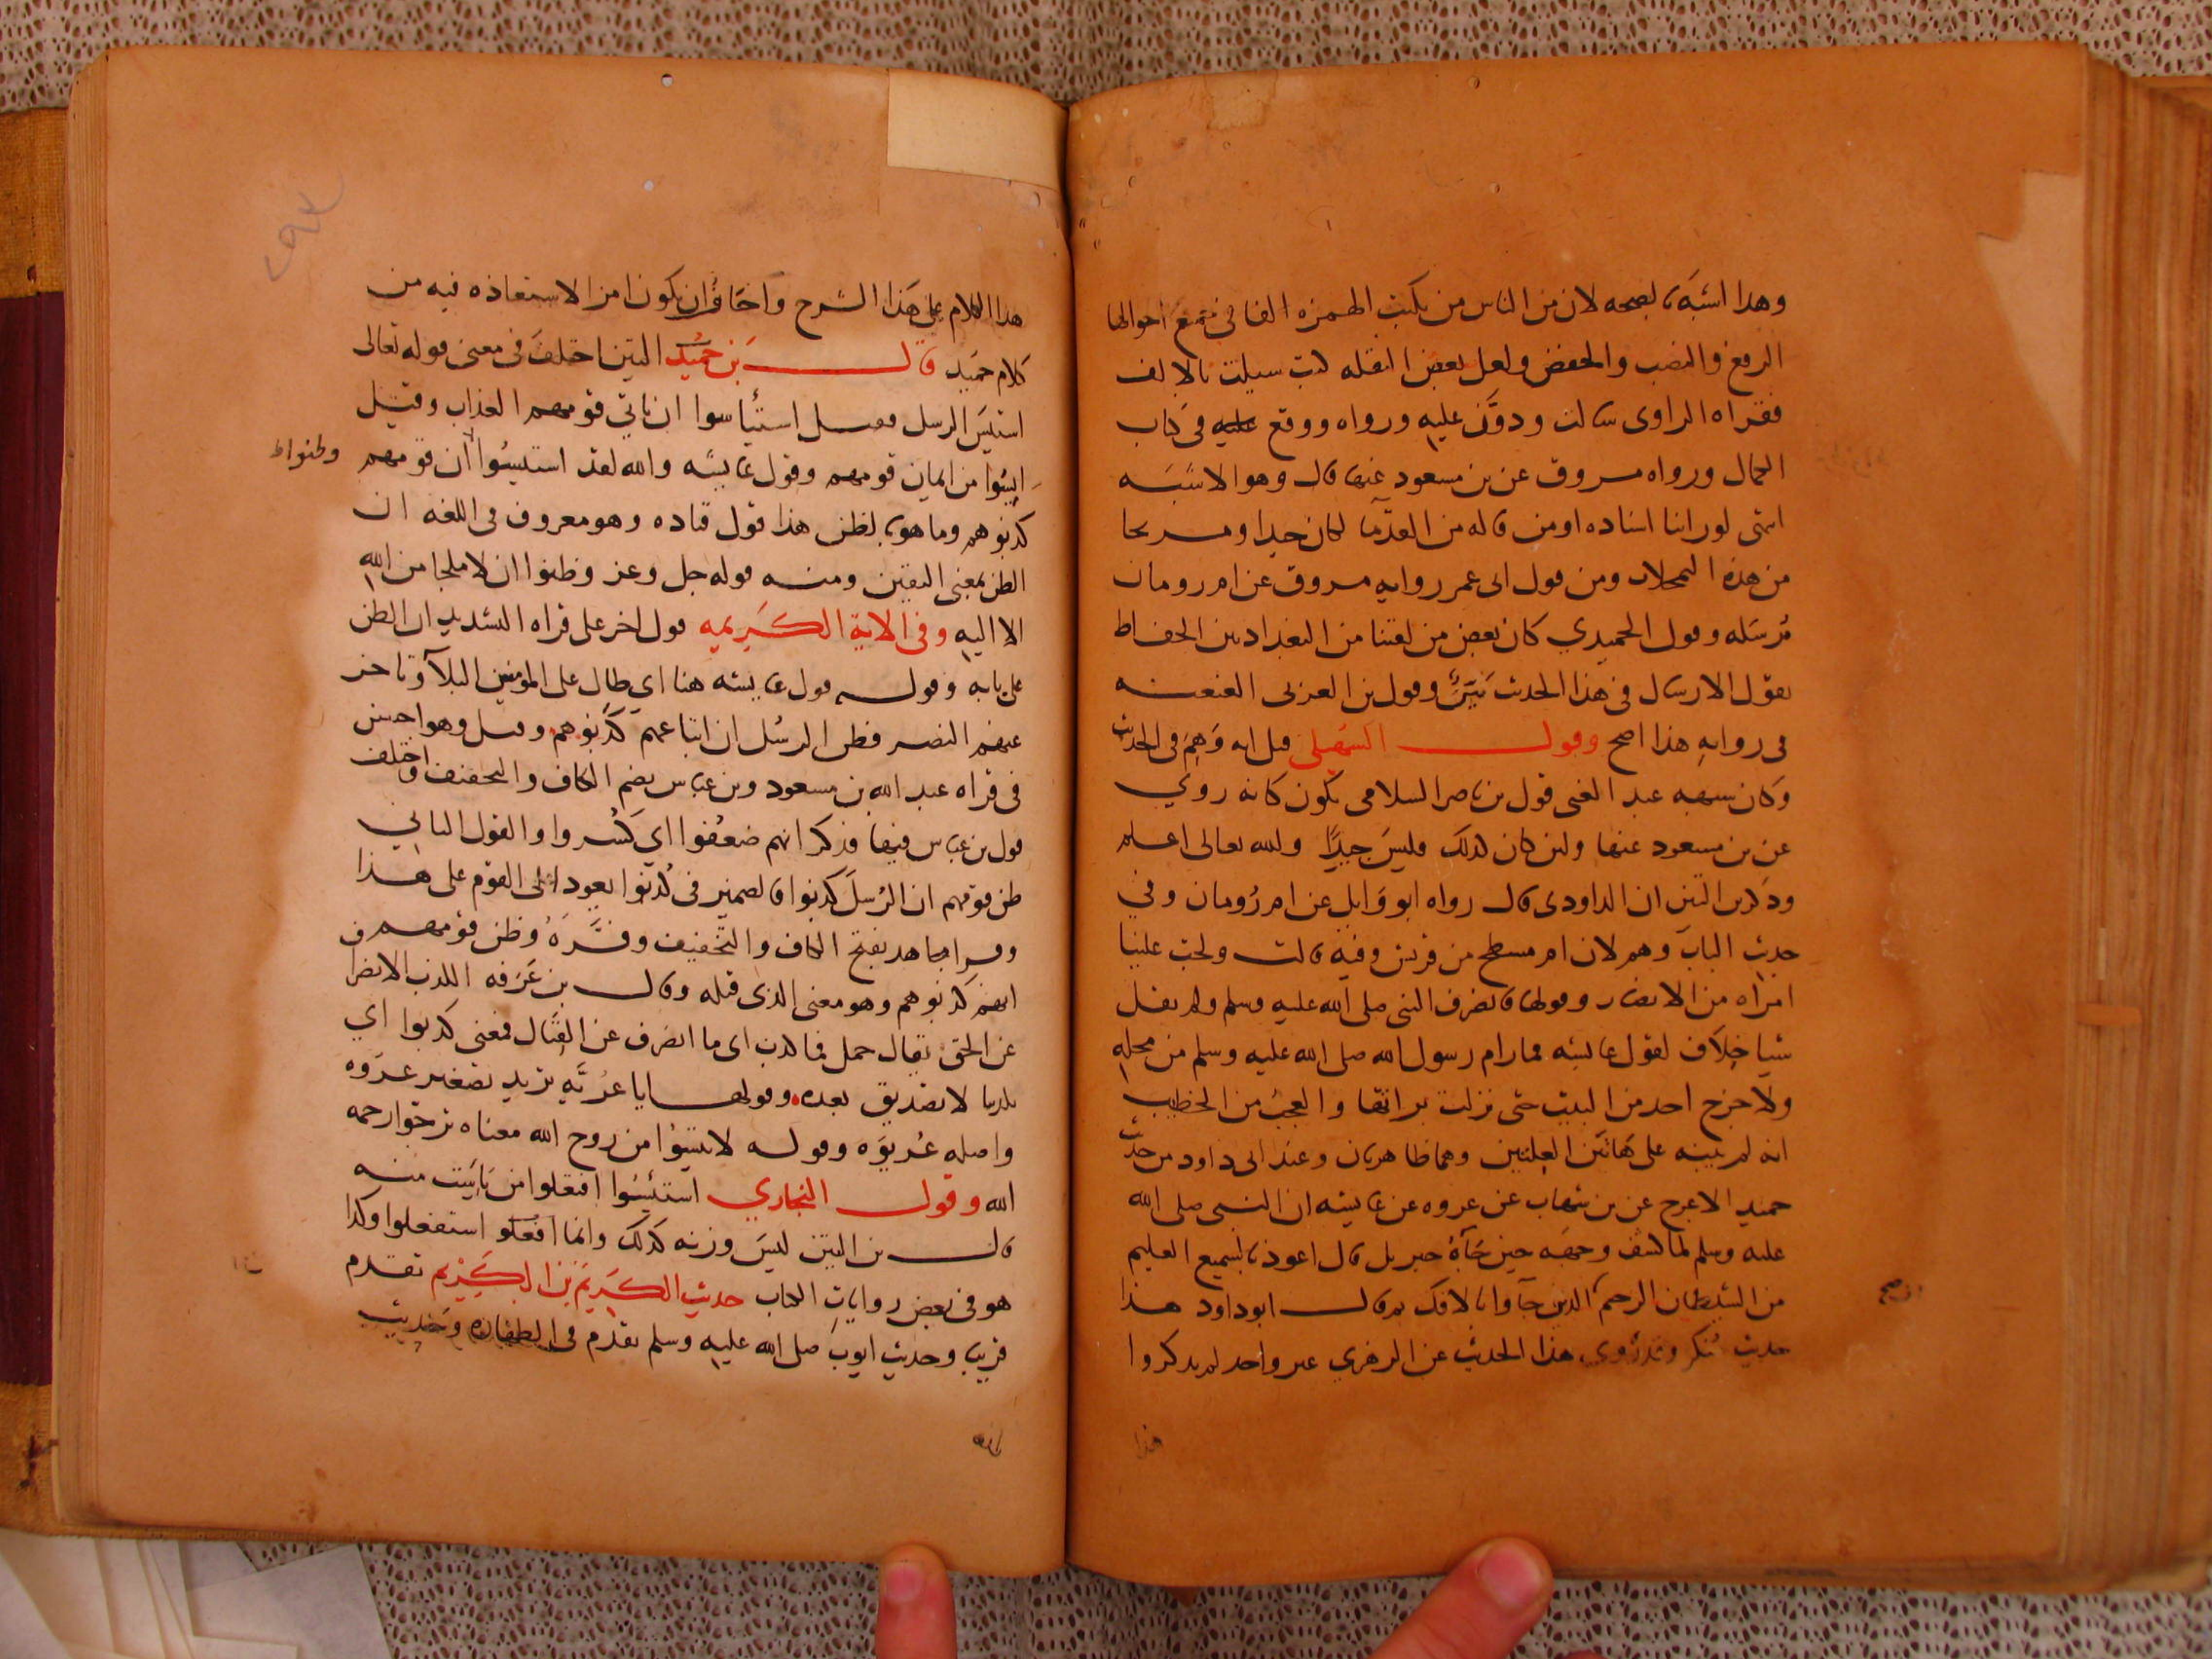 وهذا اشبه بصحه لان من الناس من يكتب الهمزه الفا في جميع احوالها
الرفع والنصب والخفض ولعل بعض النقله كتب سيلت بالالف
فقراه الراوى سالت ودون عليه ورواه ووقع عليه فى كتاب
الكمال ورواه مسروق عن بن مسعود عنها قال وهو الاشبه
انتهى لو راينا اسناده او من قاله من القدما لكان جيدا ومريحا
من هذه التمحلات ومن قول ابى عمر روايه مسروق عن ام رومان
مرسله وقول الحميدي كان بعض من لقينا من البغداديين الحفاظ
يقول الارسال فى هذا الحديث بين وقول بن العربى العنعنه
فى روايه هذا اصح وقول السهيلى قيل انه وهم فى الحديث
وكان شبهه عبد الغنى قول بن ناصر السلامى يكون كانه روي
عن بن مسعود عنها ولين كان كذلك فليس جيدا والله تعالى اعلم
وذكر بن التين ان الداودى قال رواه ابو وايل عن ام رومان وفي
حديث الباب وهم لان ام مسطح من قريش وفيه قالت ولجت علينا
امراه من الانصار وقولها فانصرف النبى صلى الله عليه وسلم ولم يقل
شيا خلاف لقول عايشه فما رام رسول الله صلى الله عليه وسلم من محله
ولا خرج احد من البيت حتى نزلت براتها والعجب من الخطيب
انه لم ينبه على هاتين العلتين وهما ظاهرتان وعند ابى داود من حديث
حميد الاعرج عن بن شهاب عن عروه عن عايشه ان النبى صلى الله
عليه وسلم لما كشف وجهه حين جآه جبريل قال اعوذ بالسميع العليم
من الشيطان الرجيم الذين جآوا بالافك ثم قال ابو داود هذا
حديث منكر وقد روى هذا الحديث عن الزهري غير واحد لم يذكروا
هذا
هذا الكلام على هذا الشرح واخاف ان يكون امر الاستعاذه فيه من
كلام حميد قال بن حميد التين اختلف فى معنى قوله تعالى
استيس الرسل فقيل استيأسوا ان ياتي قومهم العذاب وقيل
ايسوا من ايمان قومهم وقول عايشه والله لقد استيسوا ان قومهم
وظنوا
كذبوهم وما هو بالظن هذا قول قتاده وهو معروف فى اللغه ان
الظن بمعنى اليقين ومنه قوله جل وعز وظنوا ان لا ملجا من الله
الا اليه وفى الاية الكريمه قول اخر على قراه التشديد ان الظن
على بابه وقوله قول عايشه هنا اي طال على المومنين البلآ وتاخر
عنهم النصر فظن الرسل ان اتباعهم كذبوهم وقيل وهو احسن
فى قراه عبد الله بن مسعود وبن عباس بضم الكاف والتخفيف واختلف
قول بن عباس فيها فذكر انهم ضعفوا اي كسروا والقول الثاني
ظن قومهم ان الرسل كذبوا فالضمير فى كذبوا يعود على القوم على هذا
وقرا مجاهد بفتح الكاف والتخفيف وفسره وظن قومهم
انهم كذبوهم وهو معنى الذى قبله وقال بن عرفه الكذب الانصراف
عن الحق يقال حمل فما كذب اى ما انصرف عن القتال فمعنى كذبوا اي
تكذيبا لا تصديق بعده وقولها يا عريه تريد تصغير عروه
واصله عريوه وقوله لا تيسوا من روح الله معناه ترجوا رحمه
الله وقول البخاري استيئسوا افتعلوا من يايست منه
قال بن التين ليس وزنه كذلك وانما افعلو استفعلوا وكذا
هو فى بعض روايات الكتاب حديث الكريم بن الكريم تقدم
قريب وحديث ايوب صلى الله عليه وسلم تقدم فى الطهاره وحديث